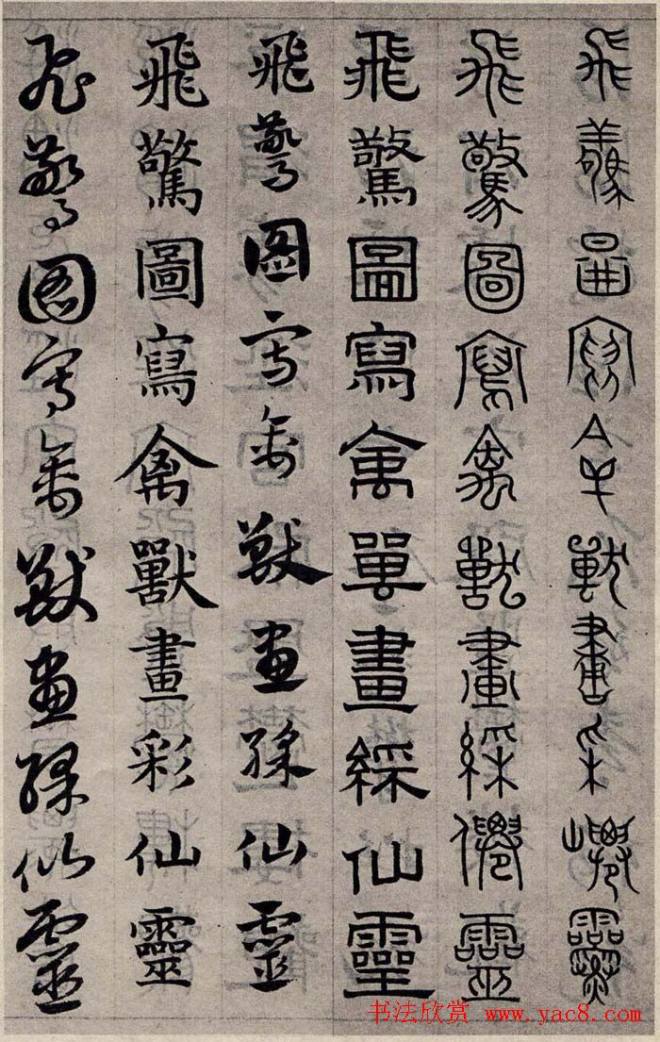 飛驚啚寫禽獸畫采僊靈
飛驚圖寫禽獸畫綵僊靈
飛驚圖寫禽嘼畫綵仙靈
飛驚圖寫禽獸畫綵仙靈
飛驚圖寫禽獸畫彩仙靈
飛驚圖寫禽獸畫綵仙靈
书法欣赏 www.yac8.com